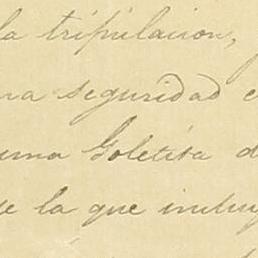 la tripulacion,
na seguridad e
uma Goletita d
se la que incluy